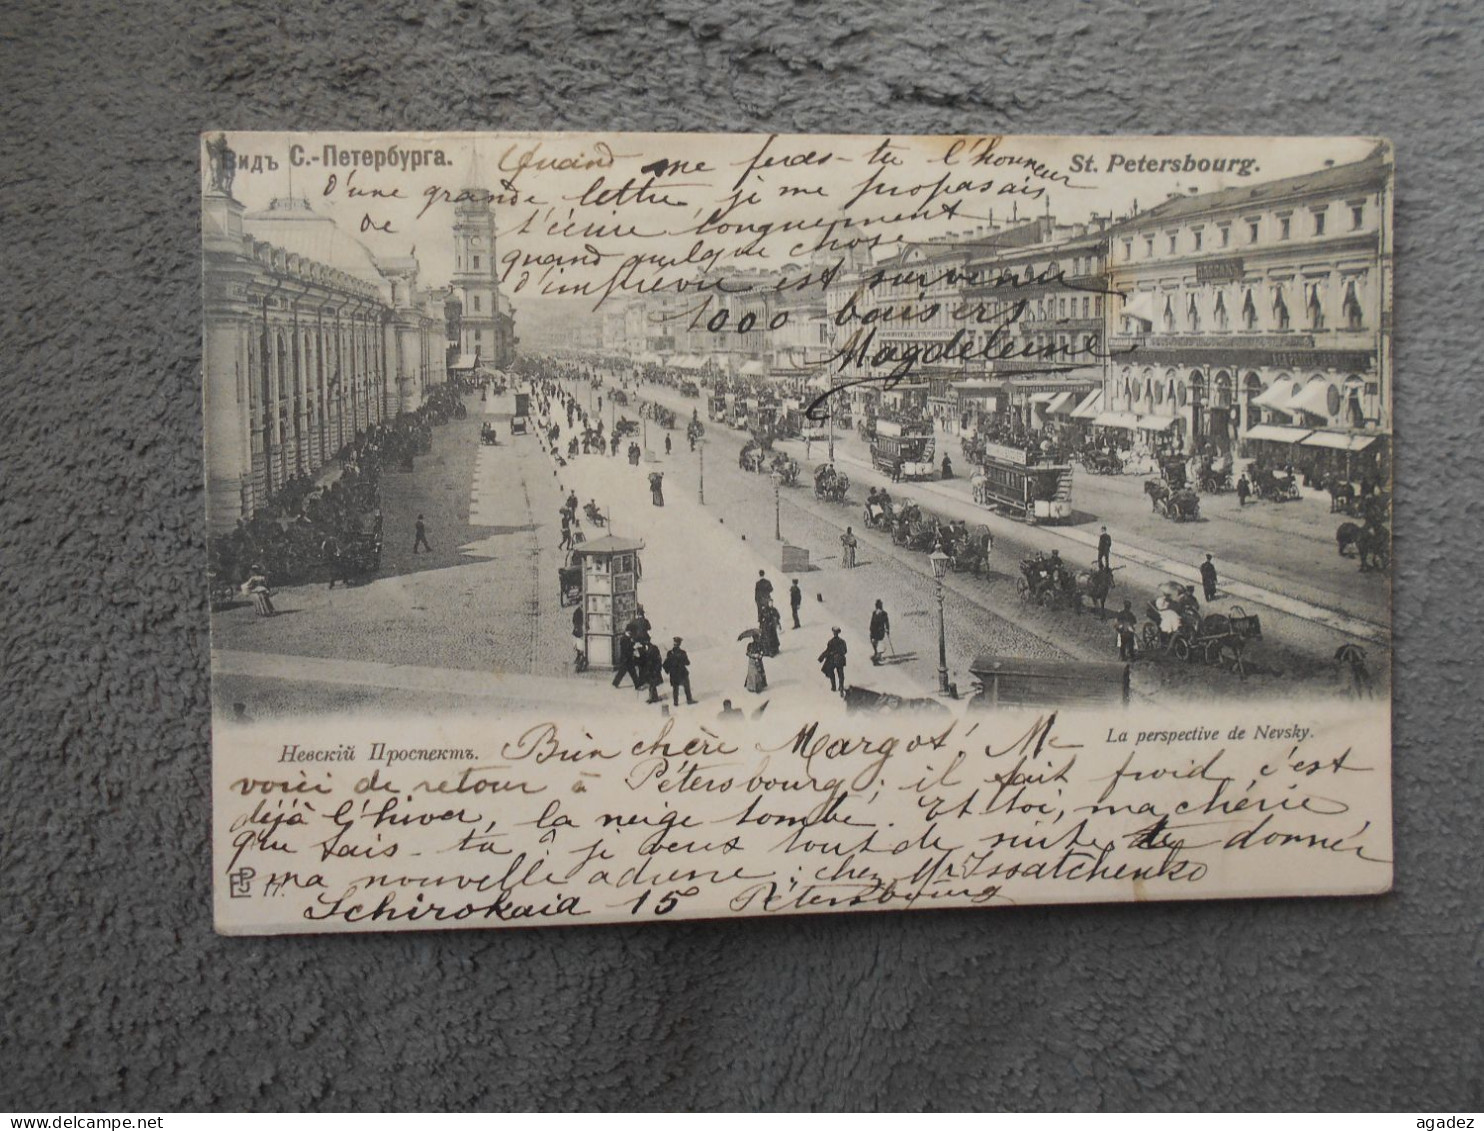 Видъ С.-Петербурга.
St. Petersbourg.
Quand me feras-tu l'honneur
d'une grande lettre, je me proposais
de t'écrire longuement
quand quelque chose
d'imprévu est survenu
1000 baisers
Magdeleine
Невскій Проспектъ.
La perspective de Nevsky.
Bien chère Margot! Me
voici de retour à Pétersbourg; il fait froid, c'est
déjà l'hiver, la neige tombe. Et toi, ma chérie
que fais-tu? je veux tout de suite te donner
ma nouvelle adresse: chez Mr Issatchenko
Schirokaia 15 Pétersbourg
agadez
www.delcampe.net